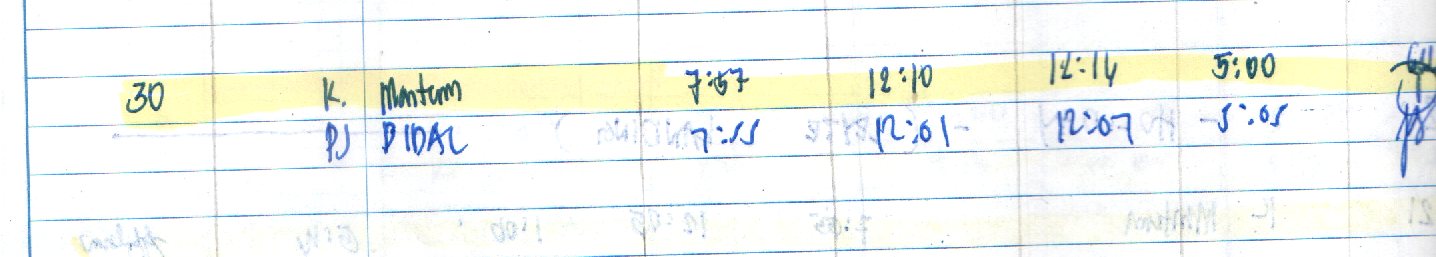 30 K. Mantum 7:57 12:10 12:14 5:00
PJ DIDAL 7:55 12:01 12:07 5:05